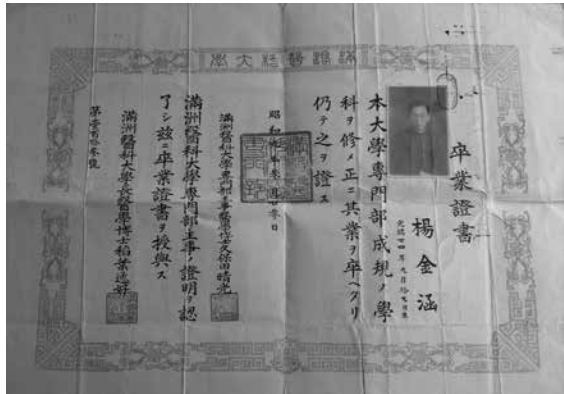 滿洲醫科大學
卒業證書
楊金涵
本大學專門部成規ノ學
科ヲ修メ正ニ其業ヲ卒ヘタリ
仍テ之ヲ證ス
昭和
滿洲醫科大學專門部主事醫學博士久保田晴光
滿洲醫科大學專門部主事ノ證明ヲ認
了シ玆ニ卒業證書ヲ授與ス
滿洲醫科大學長醫學博士稻葉逸好